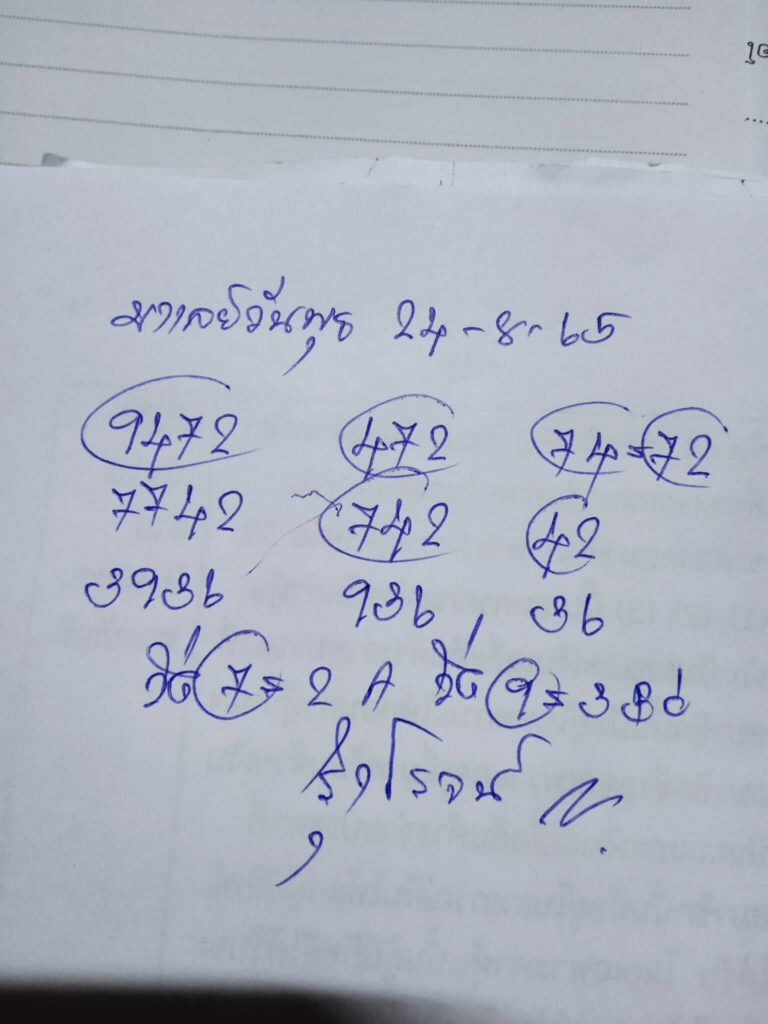 มาเลย์วันพุธ 24-8-65
9472 472 74=72
7742 742 42
3936 936 36
วิ่ง 7=2 A วิ่ง 9=3 B
รุ่งโรจน์